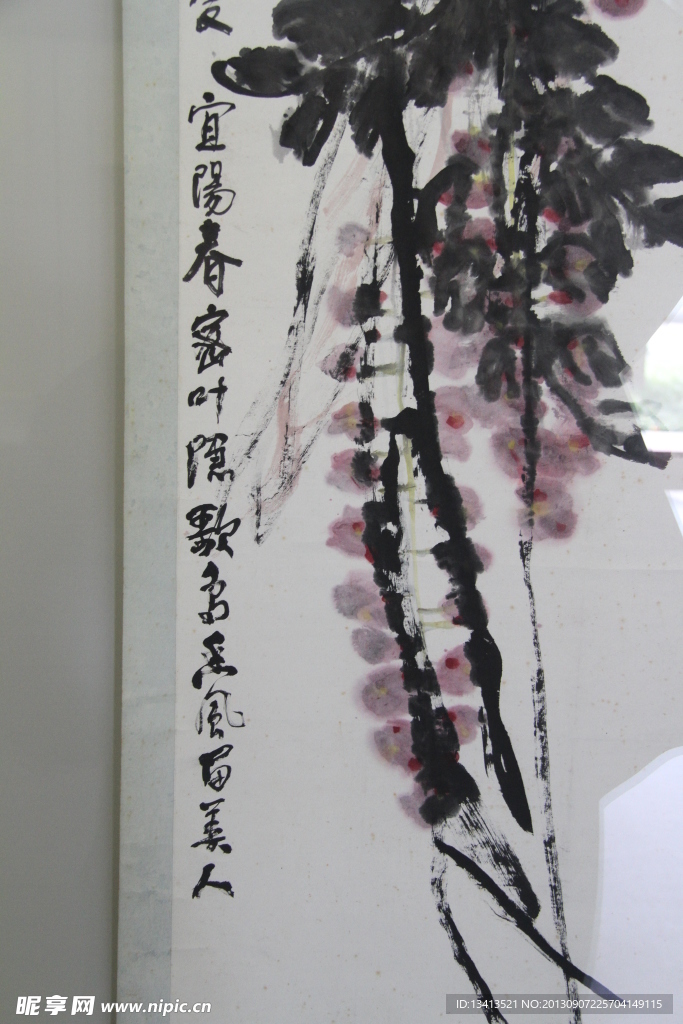 宜陽春密叶隱歌鳥香風留美人
昵享网 www.nipic.cn
ID:13413521 NO:20130907225704149115